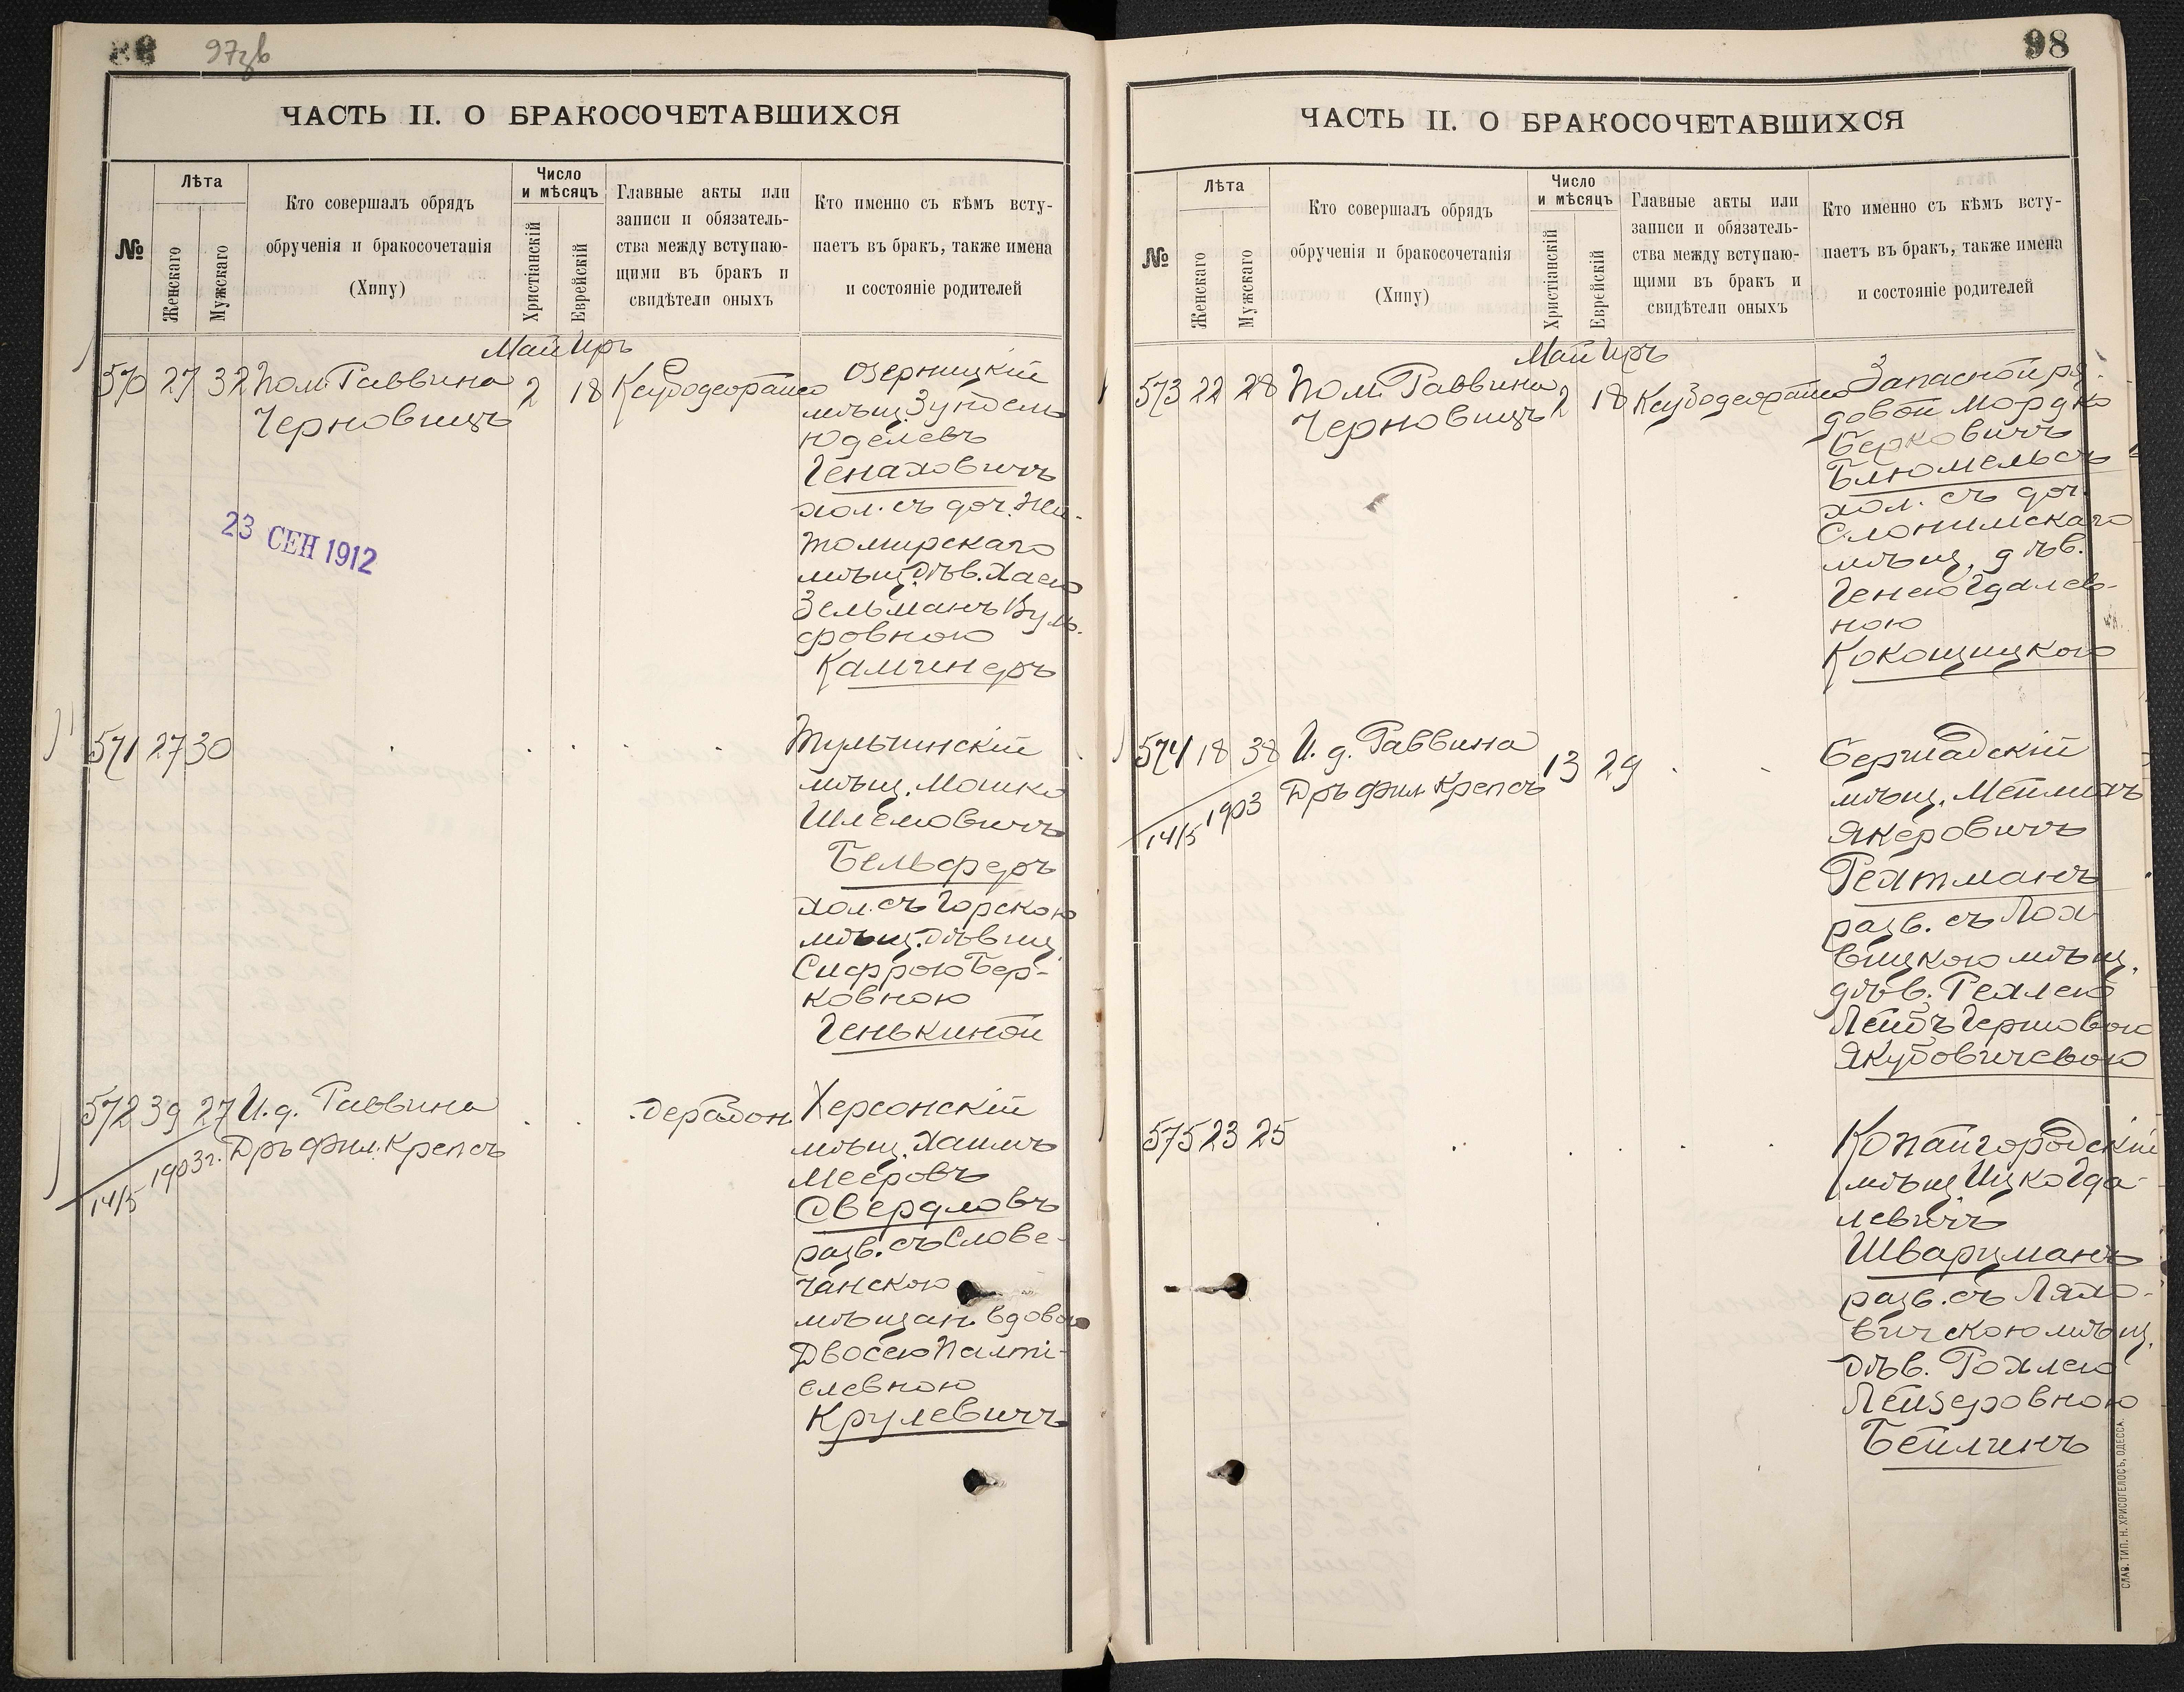 97зв
ЧАСТЬ II. О БРАКОСОЧЕТАВШИХСЯ
№
Лѣта
Женскаго
Мужскаго
Кто совершалъ обрядъ
обрученія и бракосочетанія
(Хипу)
Число
и мѣсяцъ
Христіанскій
Еврейскій
Главные акты или
записи и обязатель-
ства между вступаю-
щими въ бракъ и
свидѣтели оныхъ
Кто именно съ кѣмъ всту-
паетъ въ бракъ, также имена
и состояніе родителей
Май Иръ
570 27 32 Пом. Раввина 2 18 Ксубодеорайсо
Черновицъ
Озерницкій
мѣщ. Зундель
Юделевъ
Генаховичъ
хол. съ доч. Жи-
томирскаго
мѣщ. дѣв. Хаею
Зельманъ Вуль-
фовною
Камчинеръ
23 СЕН 1912
571 27 30
Тульчинскій
мѣщ. Мошко
Шлемовичъ
Бельферъ
хол. съ Горскою
мѣщ. дѣвиц.
Сифрою Бер-
ковною
Генькиной
572 39 27 И. д. Раввина
Дръ Фил. Крепсъ
14/5 1903 г.
дерабон.
Херсонскій
мѣщ. Хаимъ
Мееровъ
Свердловъ
разв. съ Слове-
чанскою
мѣщан. вдовою
Двосею Палті-
елевною
Крулевичъ
98
ЧАСТЬ II. О БРАКОСОЧЕТАВШИХСЯ
№
Лѣта
Женскаго
Мужскаго
Кто совершалъ обрядъ
обрученія и бракосочетанія
(Хипу)
Число
и мѣсяцъ
Христіанскій
Еврейскій
Главные акты или
записи и обязатель-
ства между вступаю-
щими въ бракъ и
свидѣтели оныхъ
Кто именно съ кѣмъ всту-
паетъ въ бракъ, также имена
и состояніе родителей
Май Иръ
573 22 28 Пом. Раввина 2 18 Ксубодеорайсо
Черновицъ
Запасной ря-
довой Мордко
Берковичъ
Блюмельсъ
хол. съ доч.
Слонимскаго
мѣщ. дѣв.
Генею Гдалев-
ною
Кокощицкою
574 18 38 И. д. Раввина 13 29
Дръ Фил Крепсъ
14/5 1903
Бершадскій
мѣщ. Мейлахъ
Якеровичъ
Рехтманъ
разв. съ Лох-
вицкою мѣщ.
дѣв. Рехлею
Лейбъ Гершовою
Якубовичевою
575 23 25
Копайгородскій
мѣщ. Ицко Гда-
левичъ
Шварцманъ
разв. съ Ляхо-
вичскою мѣщ.
дѣв. Рохлею
Лейзеровною
Бейлинъ
СЛАВ. ТИП. Н. ХРИСОГЕЛОСЪ, ОДЕССА.